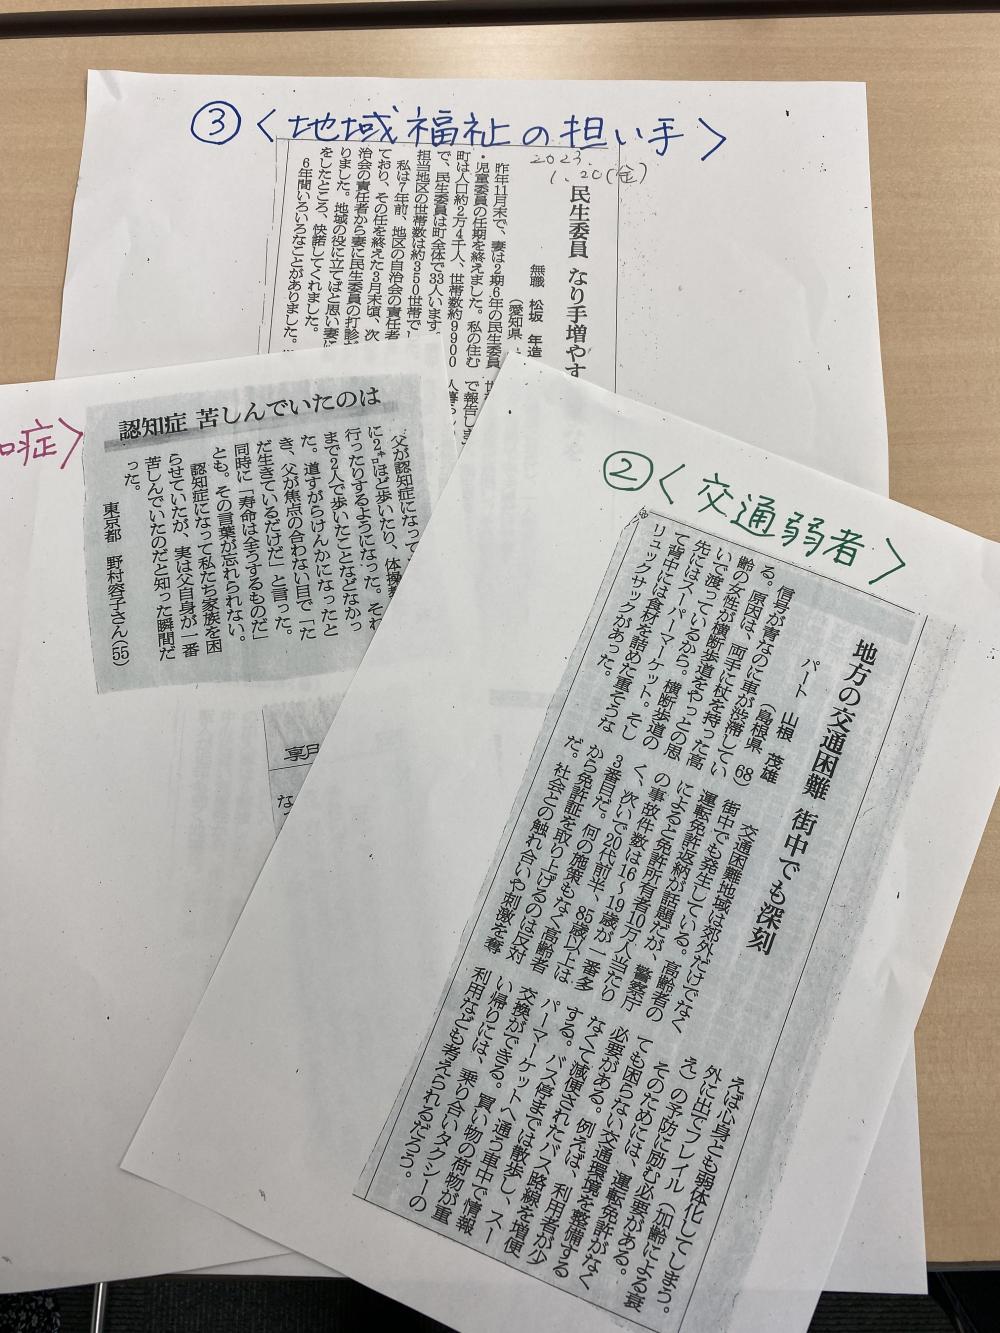 ③〈地域福祉の担い手〉
2023.
1.20(金)
民生委員 なり手増やす
無職 松坂 年造
(愛知県
昨年11月末で、妻は2期6年の民生委員
・児童委員の任期を終えました。私の住む
町は人口約2万4千人、世帯数約9900
で、民生委員は町全体で33人います
担当地区の世帯数は約350世帯で
私は7年前、地区の自治会の責任者
ており、その任を終えた3月末頃、次
治会の責任者から妻に民生委員の打診が
りました。地域の役に立てばと思い妻に
をしたところ、快諾してくれました。
6年間いろいろなことがありました。
で報告しま
人暮らし
知症〉
認知症 苦しんでいたのは
父が認知症になって
に2㌔ほど歩いたり、体操
行ったりするようになった。それ
まで2人で歩いたことなどなかっ
た。道すがらけんかになったと
き、父が焦点の合わない目で「た
だ生きているだけだ」と言った。
同時に「寿命は全うするものだ」
とも。その言葉が忘れられない。
認知症になって私たち家族を困
らせていたが、実は父自身が一番
苦しんでいたのだと知った瞬間だ
った。
東京都 野村容子さん(55
朝
な
②〈交通弱者〉
地方の交通困難 街中でも深刻
パート 山根 茂雄
(島根県 68)
信号が青なのに車が渋滞してい
る。原因は、両手に杖を持った高
齢の女性が横断歩道をやっとの思
いで渡っているから。横断歩道の
先にはスーパーマーケット。そし
て背中には食材を詰めた重そうな
リュックサックがあった。
交通困難地域は郊外だけでなく
街中でも発生している。高齢者の
運転免許返納が話題だが、警察庁
によると免許所有者10万人当たり
の事故件数は16~19歳が一番多
く、次いで20代前半、85歳以上は
3番目だ。何の施策もなく高齢者
から免許証を取り上げるのは反対
だ。社会との触れ合いや刺激を奪
えば心身とも弱体化してしまう。
外に出てフレイル(加齢による衰
え)の予防に励む必要がある。
そのためには、運転免許がなく
ても困らない交通環境を整備する
必要がある。例えば、利用者が少
なくて減便されたバス路線を増便
する。バス停までは散歩し、スー
パーマーケットへ通う車中で情報
交換ができる。買い物の荷物が重
い帰りには、乗り合いタクシーの
利用なども考えられるだろう。